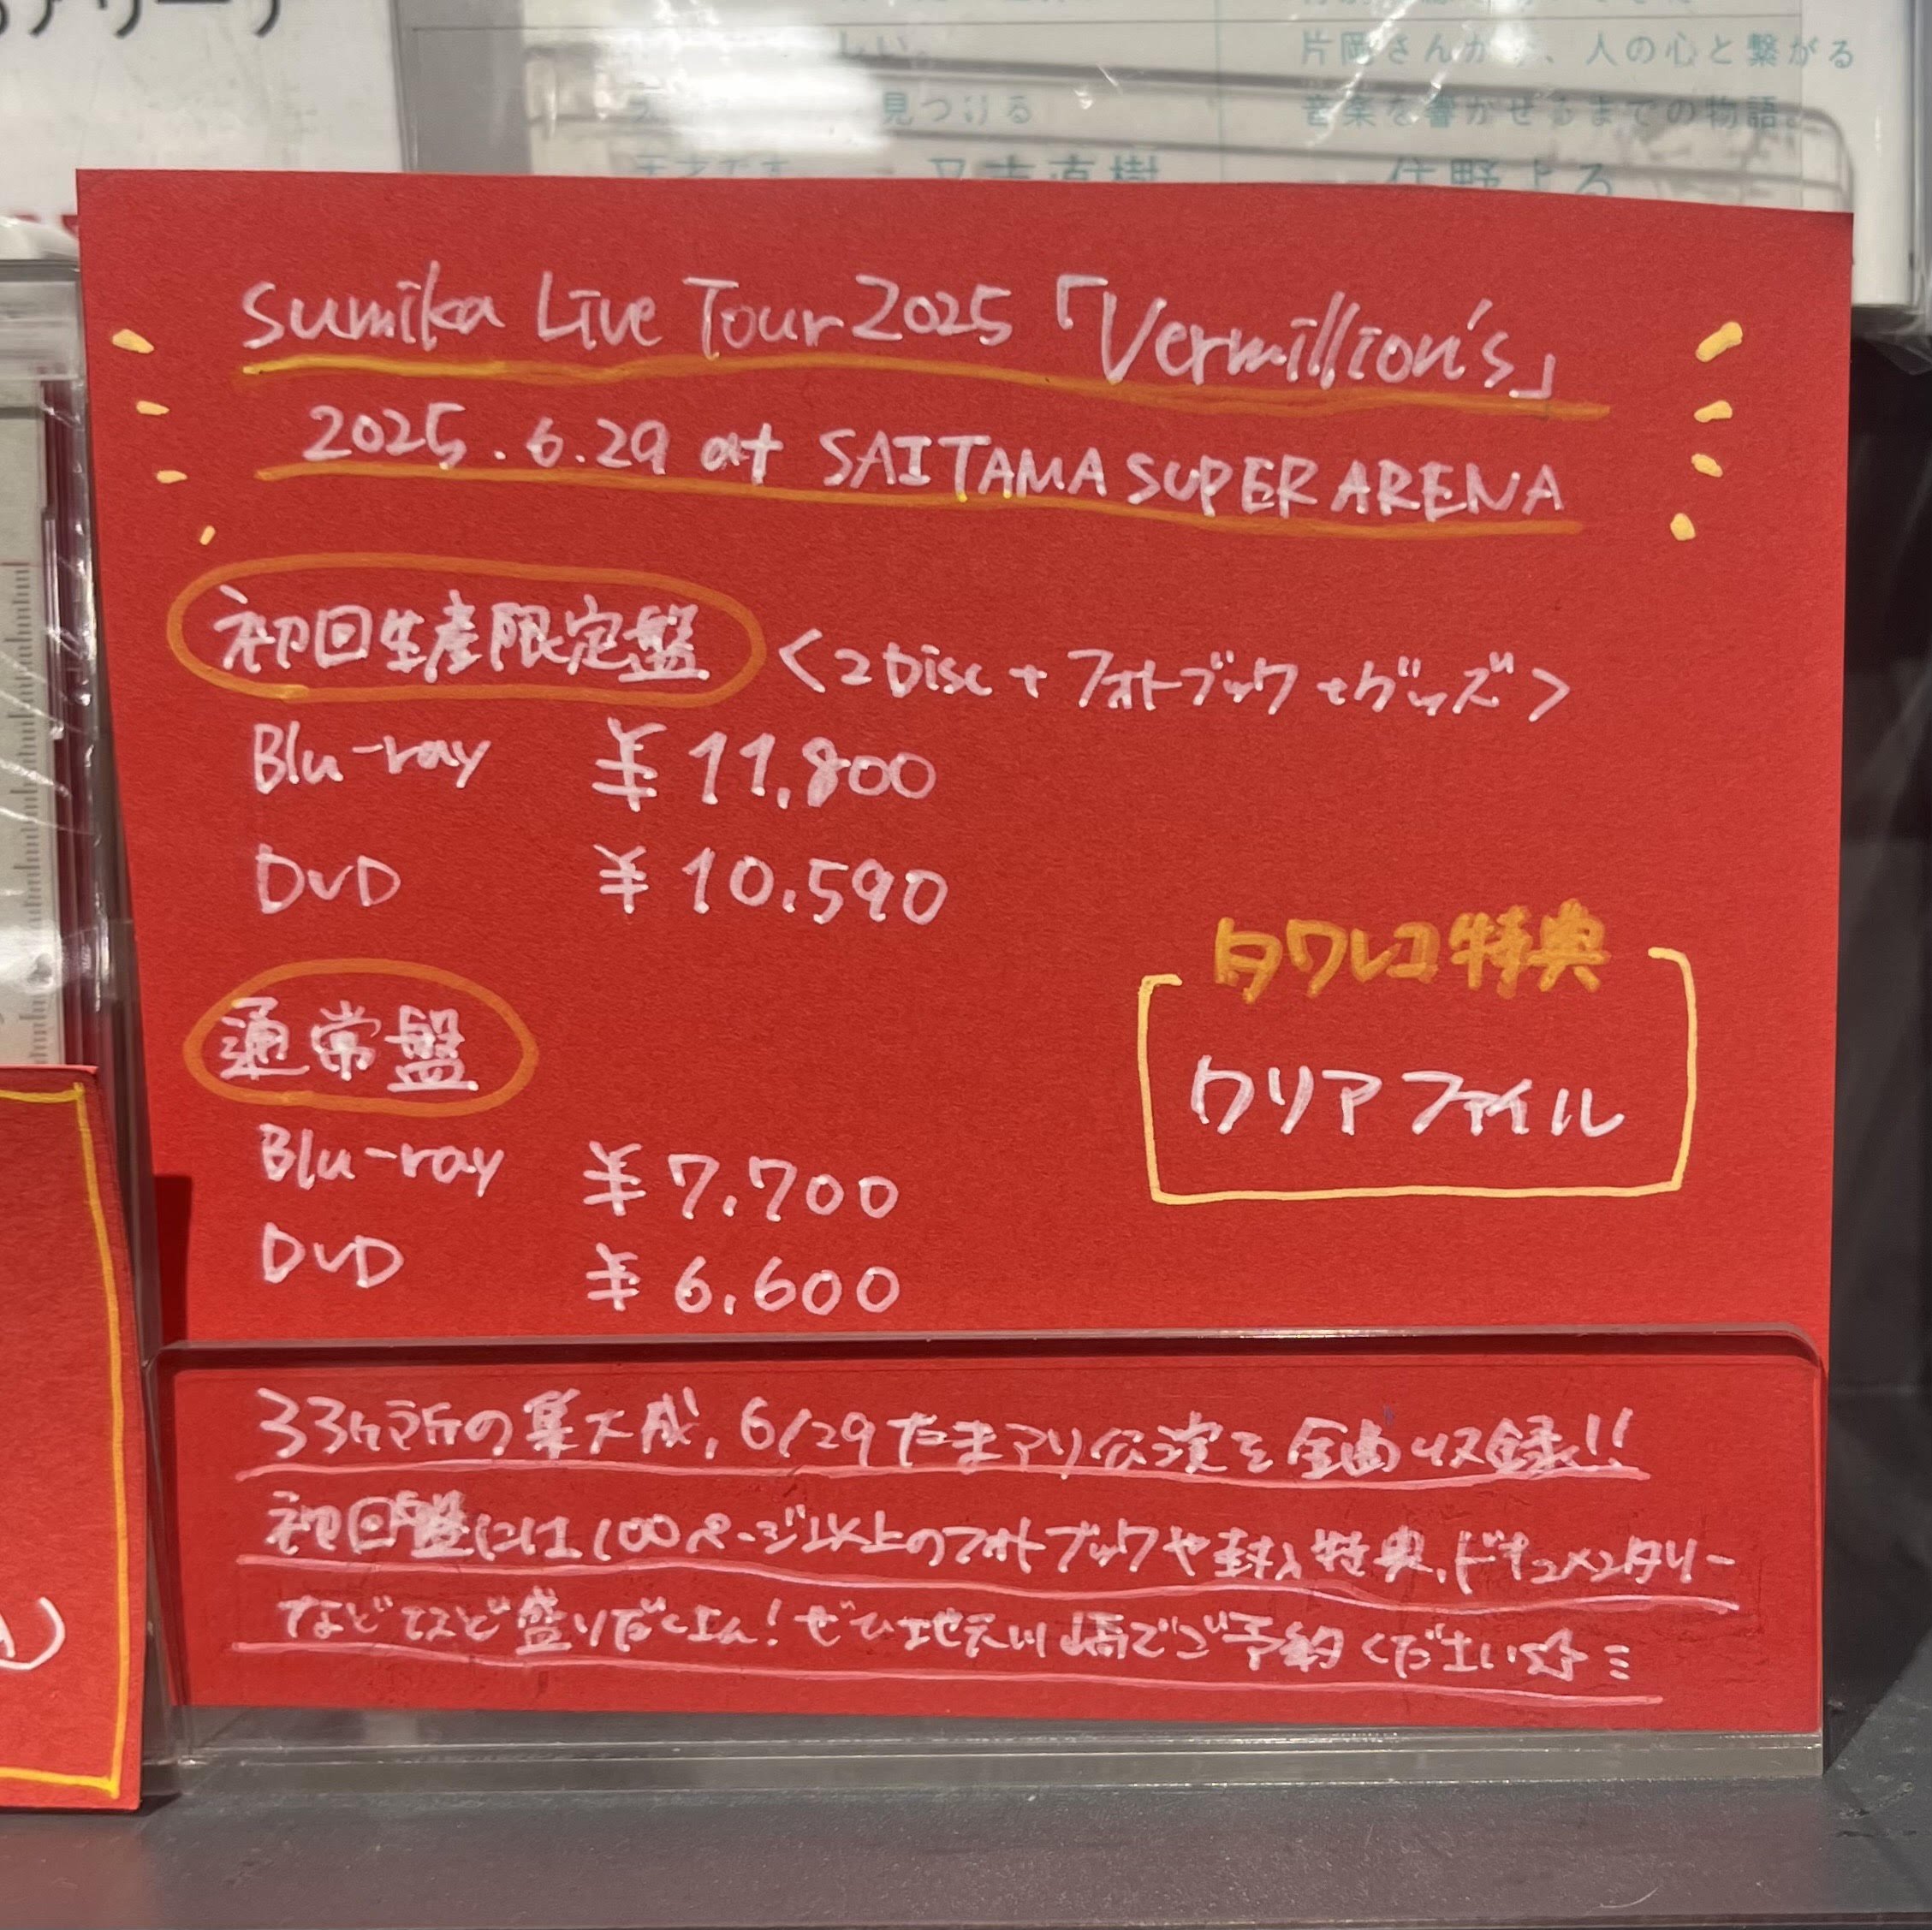 片岡さんが、人の心と繋がる
見つける
音楽を響かせるまでの物語。
天才です
又吉直樹
住野よる
sumika Live Tour 2025「Vermillion's」
2025.6.29 at SAITAMA SUPER ARENA
初回生産限定盤 <2Disc+フォトブック+グッズ>
Blu-ray ¥11,800
DVD ¥10,590
タワレコ特典
クリアファイル
通常盤
Blu-ray ¥7,700
DVD ¥6,600
33ヶ所の集大成、6/29たまアリ公演を全曲収録!!
初回盤には100ページ以上のフォトブックや封入特典、ドキュメンタリー
などなど盛りだくさん!ぜひ地元川崎でご予約ください